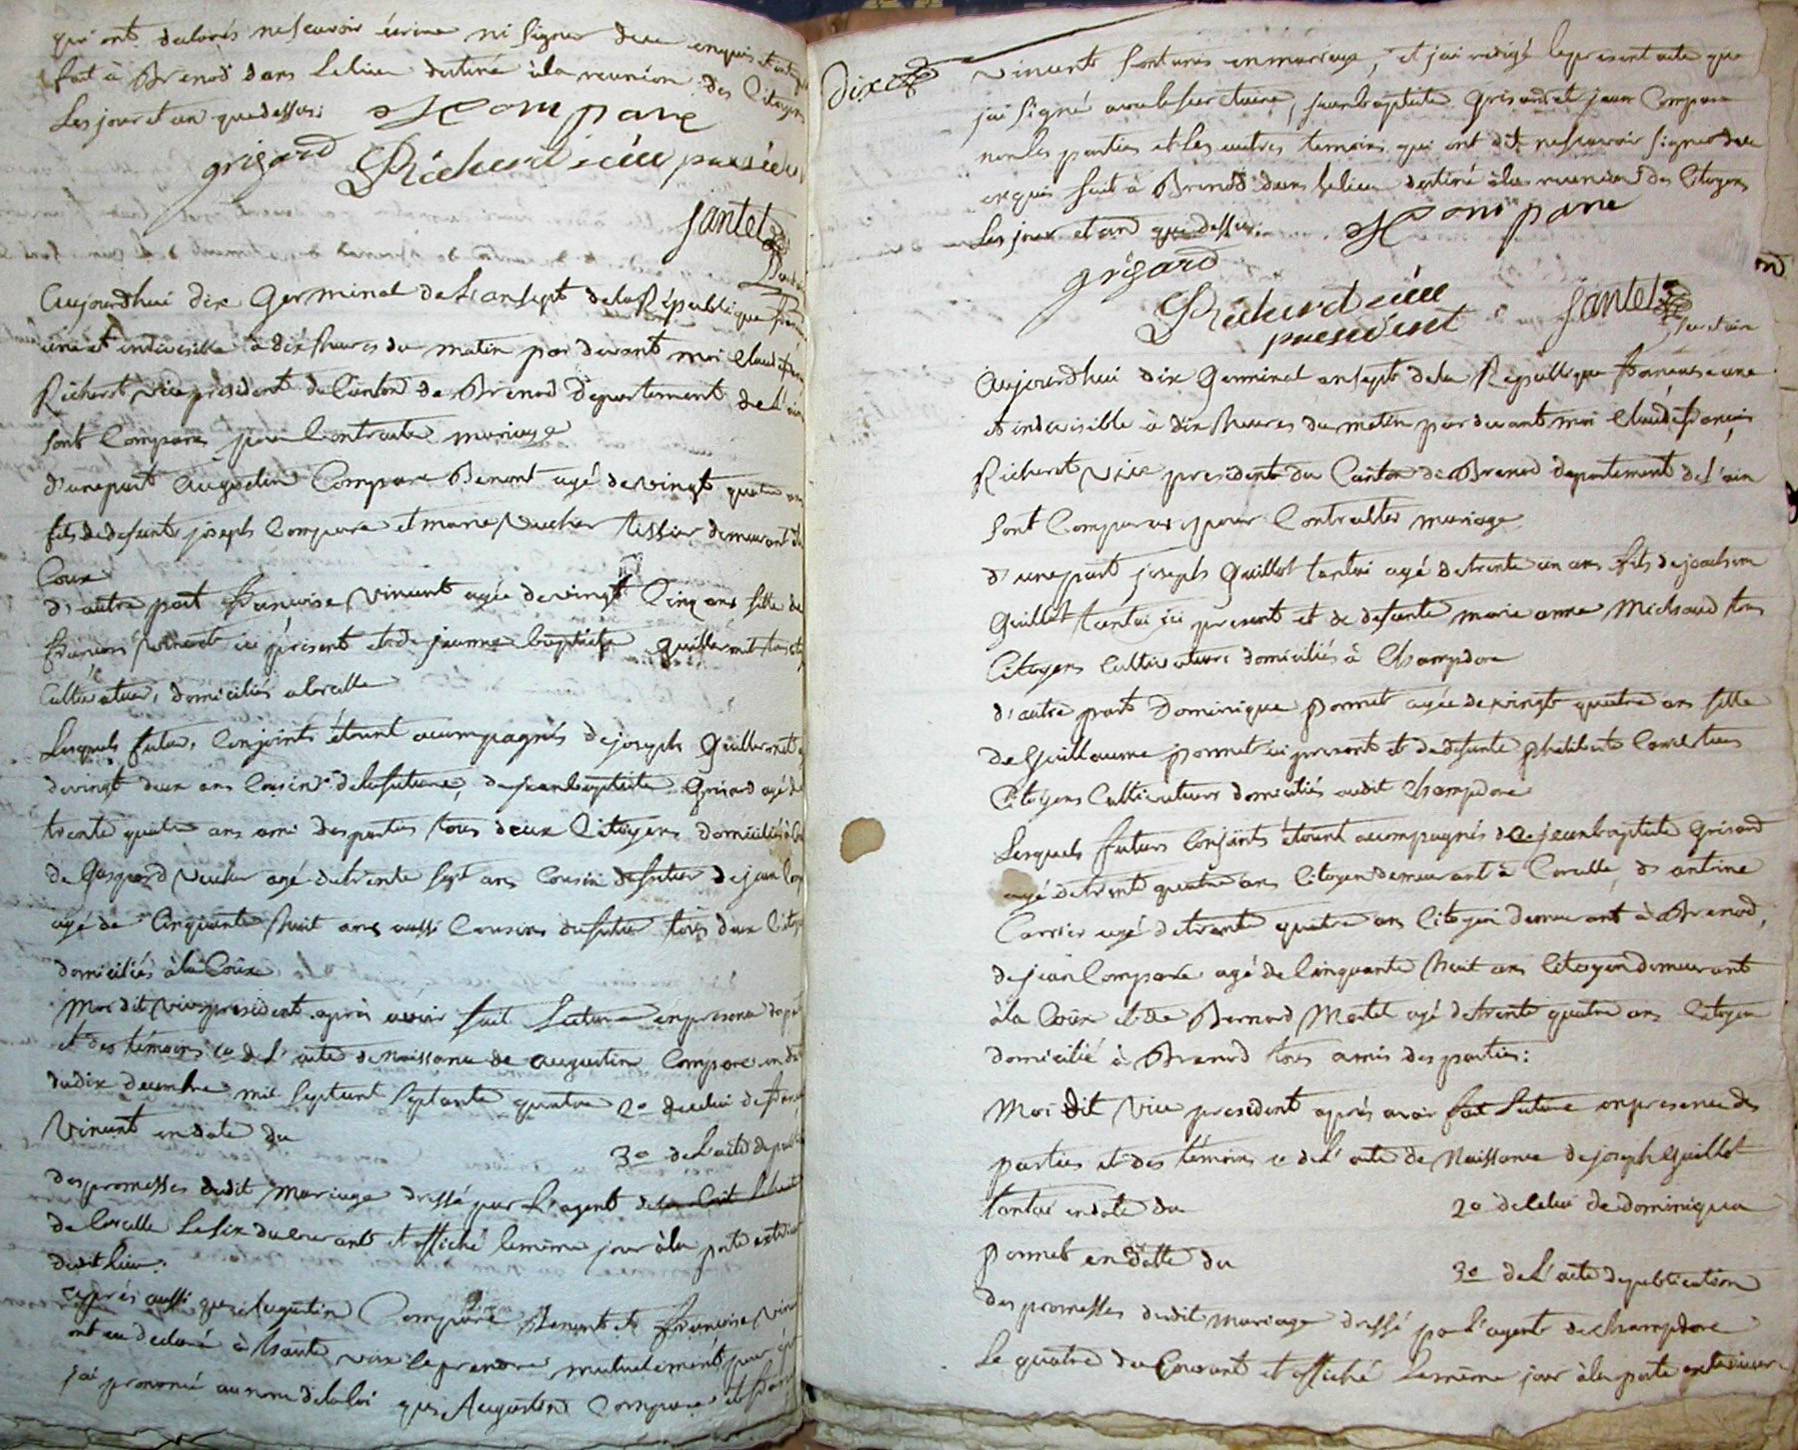 qui ont declarés ne scavoir écrire ni signer de ce enquis
fait à Brenod dans le lieu destiné à la reunion des Citoyens
les jour et an que dessus. J Compare
grigard Richerd vice president
Jantet
Aujourdhui dix Germinal de l'an sept de la République
une et indivisible à dix heures du matin par devant moi Claude
Richerd vice president du Canton de Brenod Departement de l'ain
sont Comparus pour Contracter mariage
d'une part Augustin Compare Benont agé de vingt quatre ans
fils de defunts joseph Compare et marie Vucher tissier demeurant à la
Coux
d'autre part françoise Vincent agée de vingt Cinq ans fille de
françois Vincent ici présent et de jeanne baptiste Guillermet tous
Cultivateurs domiciliés a Corcelle
Lesquels futurs Conjoints étant acompagnés de joseph Guillermet
de vingt deux ans Cousin de la future, de jean baptiste Grisard agé de
trente quatre ans ami des parties tous deux Citoyens domiciliés
de Gaspard Vucher agé de trente sept ans Cousin du futur de jean
agé de Cinquante huit ans aussi Cousin du futur tous deux
domiciliés à la Coux
Moi dit vice president après avoir fait Lecture en presence de
et des témoins 1o de l'acte de Naissance de augustin Compare en
du dix decembre mil sept cent septante quatre 2o de celui de
Vincent en date du
3o de l'acte de
des promesses dudit mariage dressé par l'agent
de Corcelle le six du courant et affiché le même jour à la porte
dudit lieu.
après aussi que Augustin Compare Benont et françoise
ont eu declaré à haute voix se prendre mutuelement pour
j'ai prononcé au nom de la loi que Augustin Compare et
dix
Vincent sont unis en mariage, et j'ai redigé le present acte que
j'ai signé avec le secretaire, jean baptiste Grisard et jean Compare
non les parties et les autres temoins qui ont dit ne scavoir signer de ce
enquis fait à Brenod dans le lieu destiné à la reunion des Citoyens
les jour et an que dessus. J Compare
grigard
Richerd vice
president
Jantet
secretaire
Aujourdhui dix Germinal an sept de la République francaise une
et indivisible à dix heures du matin par devant moi Claude françois
Richerd vice president du Canton de Brenod departement de l'ain
sont Comparus pour Contracter mariage
d'une part joseph Guillot tantai agé de trente un ans fils de joachim
Guillot tantai ici present et de defunte marie anne Michaud tous
Citoyens Cultivateurs domiciliés à Champdore
d'autre part Dominique Ponnet agée de vingt quatre ans fille
de Guillaume Ponnet ici present et de defunte Philiberte
Citoyens Cultivateurs domiciliés audit Champdore
Lesquels futurs Conjoints étant acompagnés de jean baptiste Grisard
agé de trente quatre ans Citoyen demeurant à Corcelle, d'antoine
Carrier agé de trente quatre ans Citoyen demeurant à Brenod,
de jean Compare agé de Cinquante huit ans Citoyen demeurant
à la Coux et de Bernard Martel agé de trente quatre ans Citoyen
domicilié à Brenod tous amis des parties:
Moi dit Vice president après avoir fait Lecture en presence des
parties et des témoins 1o de l'acte de Naissance de joseph Guillot
tantai en date du 2o de Celui de dominique
Ponnet en datte du 3o de l'acte de publication
des promesses dudit Mariage dressé par l'agent de Champdore
le quatre du Courant et affiché le même jour à la porte exterieure